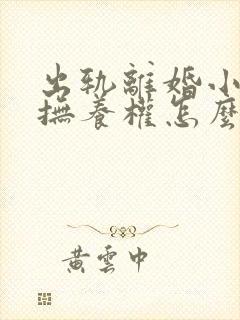 出轨離婚小
撫養權怎麼
黃雲中